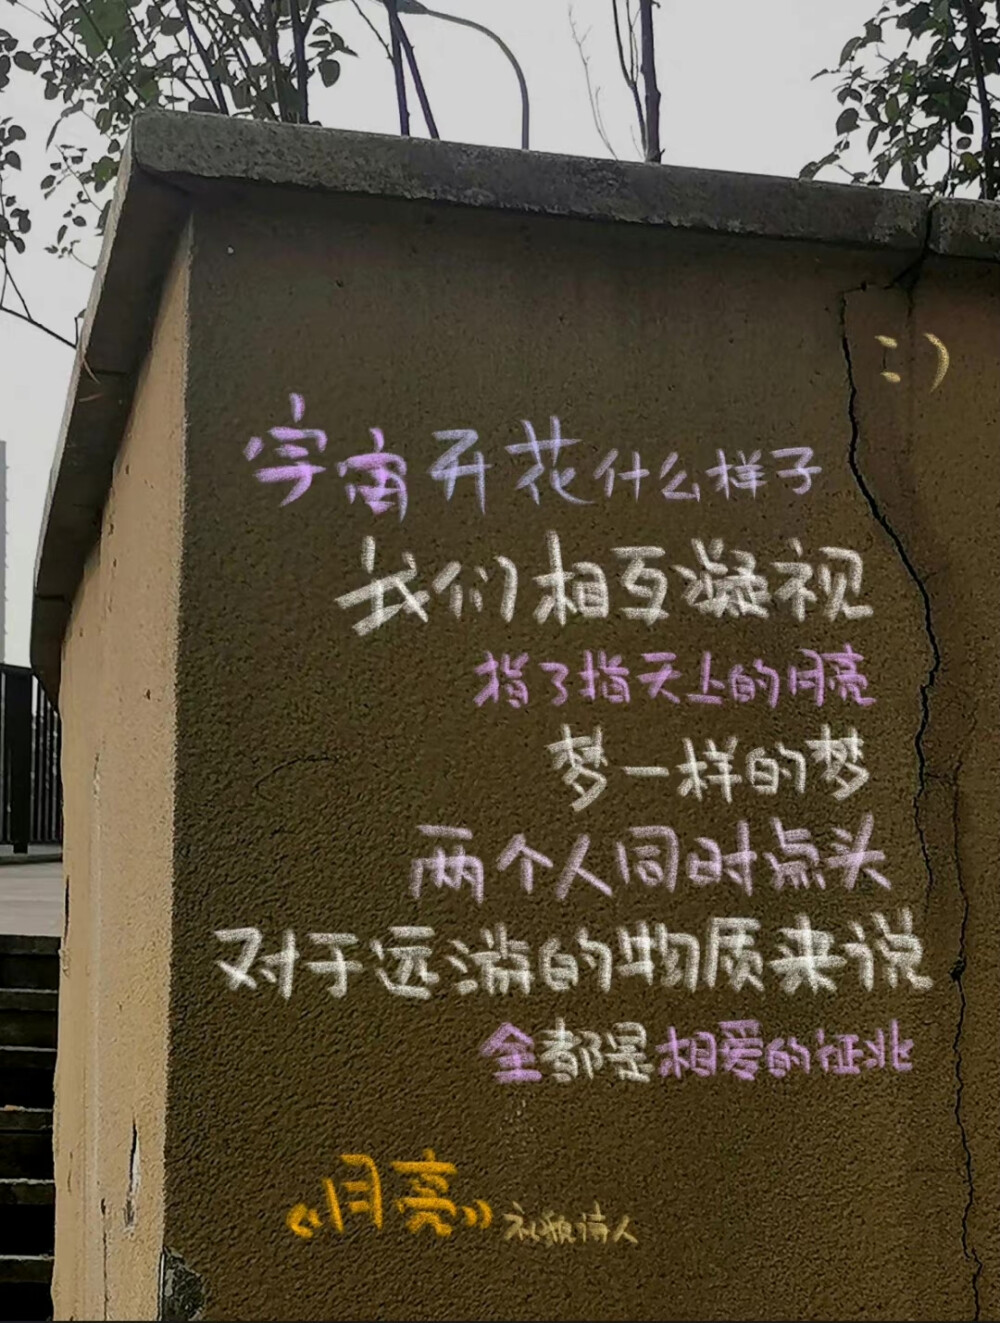 :)
宇宙开花什么样子
我们相互凝视
指了指天上的月亮
梦一样的梦
两个人同时点头
对于远游的物质来说
全都是相爱的征兆
《月亮》礼貌诗人